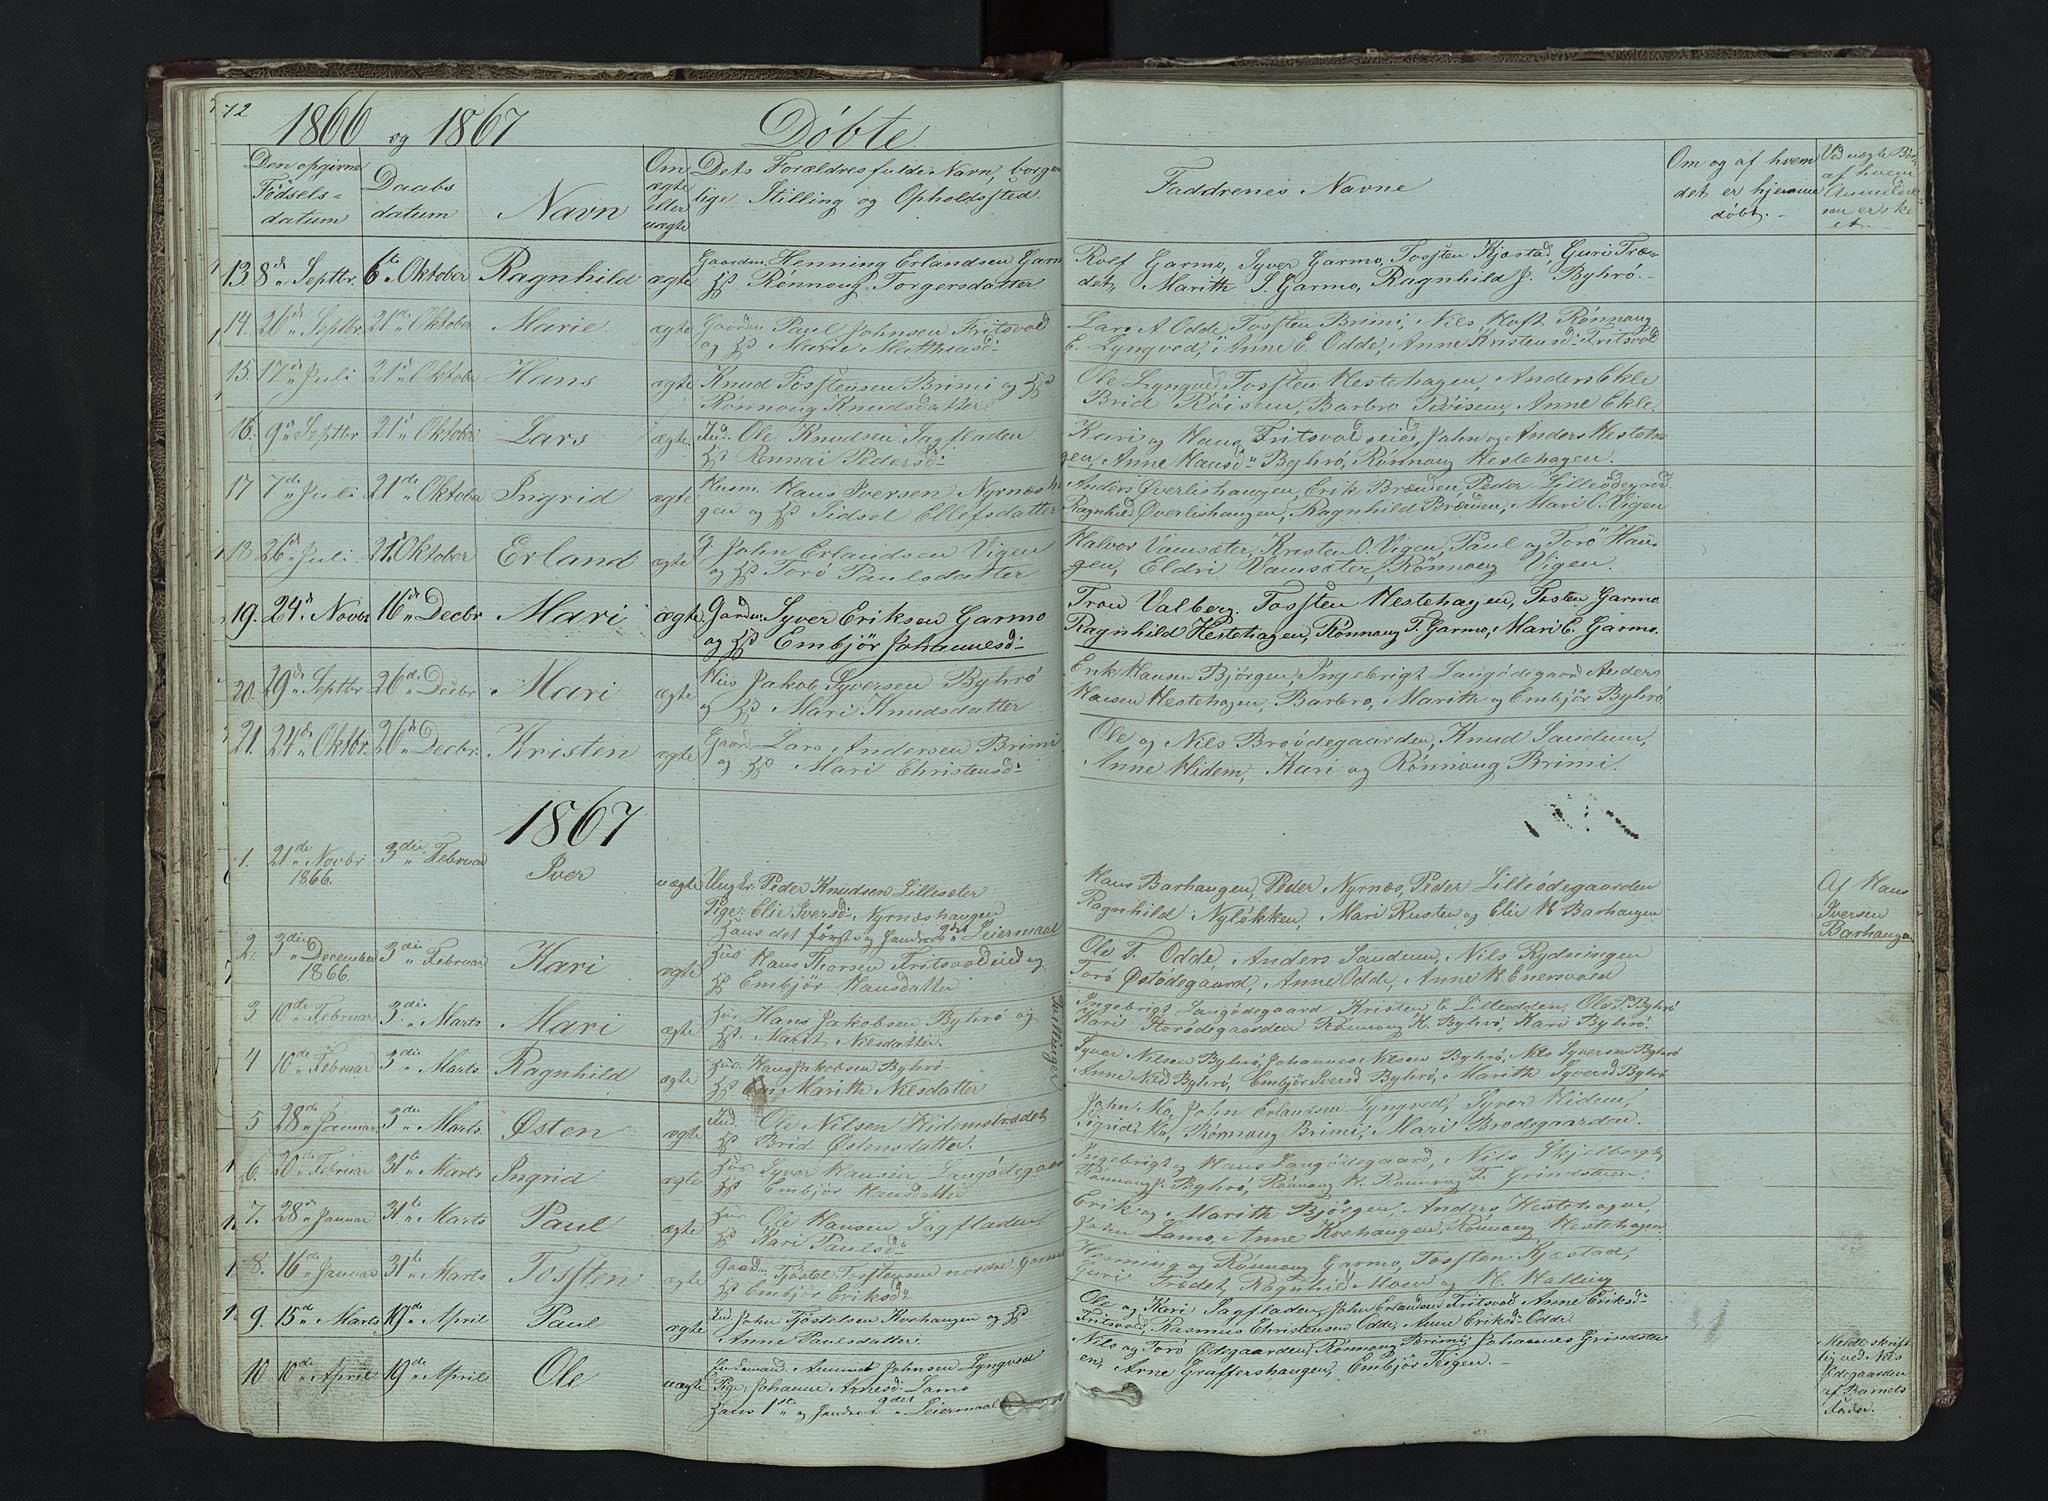 72
1866 og 1867
Døbte.
Den opgivne Fødsels-datum
Daabs datum
Navn
Om ægte eller uægte
Dets Forældres fulde Navn, borgerlige Stilling og Opholdssted.
Faddrenes Navne
Om og af hvem det er hjemmedøbt.
13. 8de Septbr. 6te Oktober Ragnhild ægte Gaardm. Henning Erlandsen Garmo
Hst Rønnoug Torgersdatter
Rolf Garmo, Syver Garmo, Tosten Kjæstad, Guri Trædet, Marith S. Garmo, Ragnhild J. Byhrö.
14. 26de Septbr. 21de Oktober Marie ægte Gaardm. Paul Johnsen Fritsvold
og Hst Marie Matthiasd.
Lars A Odde, Tosten Brimi, Nils Hoft, Rønnoug
E. Lyngved, Anne E. Odde, Anne Kristensd. Fritsvold
15. 17de Juli 21de Oktober Hans ægte Knud Tostensen Brimi og Hst
Rønnoug Knudsdatter
Ole Lyngved, Tosten Hestehagen, Anders Ekle
Brid Röisen, Barbro Röisen, Anne Ekle.
16. 9de Septbr 21de Oktober Lars ægte. Ind. Ole Knudsen Sagfladen
Hst Rennai Pedersd.
Kari og Hans Fritsvoldseid, John og Anders Hestehagen, Anne Hansd. Byhrö, Rønnoug Hestehagen.
17 7de Juli 21de Oktober Ingrid ægte Husm. Hans Iversen Nyrnæshagen og Hst Sidsel Ellefsdatter
Anders Øverlishaugen, Erik Bræuden, Peder Lilleödegaard
Ragnhild Øverlishaugen, Ragnhild Bræuden, Mari O. Vigen
18. 26de Juli 21de Oktober Erland ægte G. John Erlandsen Vigen
og Hst Torö Paulsdatter
Halvor Vamsæter, Kristen O. Vigen, Paul og Torö Haugen, Eldri Vamsæter, Rønnoug Vigen.
19. 24de Novbr 16de Decbr Mari ægte Gardm. Syver Eriksen Garmo
og Hst Embjör Johannesd.
Tron Valberg. Tosten Hestehagen, Tosten Garmo
Ragnhild Hestehagen, Rønnoug T. Garmo, Mari E. Garmo.
20. 29de Septbr 26de Decbr Mari ægte Huus Jakob Syversen Byhrö
og Hst Mari Knudsdatter
Erik Hansen Bjørgen, Ingebrigt Langödegaard, Anders
Hansen Hestehagen, Barbro, Marith og Embjör Byhrö
21. 24de Oktbr. 26de Decbr. Kristen ægte Gaard. Lars Andersen Brimi
og Hst Mari Christensd.
Ole og Nils Broödegaarden, Knud Sandum,
Anne Hidem, Kari og Rønnoug Brimi.
1867
1. 21de Novbr 1866. 3die Februar Iver uægte Ung Kr. Peder Knudsen Lillesæter
Pige: Elie Iversd. Nyrnæshaugen
Hans det første og hendes 2det Leiermaal
Hans Barhaugen, Peder Nyrnæs, Peder Lilleödegaarden
Ragnhild Nylökken, Mari Rusten og Elie H Barhaugen
Af Hans
Iversen
Barhaugen
2. 3die December 1866 3die Februar Kari ægte Hus Hans Thorsen Fritsvoldeid og
Hst Embjör Hansdatter
Ole T. Odde, Anders Sandum, Nils Rydningen
Torö Østödegaard, Anne Odde, Anne H Enersvold
3. 10de Februar 3die Marts Mari ægte Hus Hans Jakobsen Byhrö og
Hst. Marit Nilsdatter.
Tvillinger
Ingebrigt Langödegaard Kristen E. Lilleödden, Ole P. Byhrö
Kari Storödegaarden Rønnoug K. Byhrö, Kari Byhrö.
4 10de Februar 3die Marts Ragnhild ægte Hus. Hans Jakobsen Byhrö
Hst Marith Nilsdatter
Syver Nilsen Byhrö, Johannes Nilsen Byhrö, Nils Syversen Byhrö
Anne Nilsd Byhrö, Embjör Iversd Byhrö, Marith Syversd Byhrö
5 28de Januar 3die Marts Østen ægte Ind. Ole Nilsen Hidemstrædet
Hst Brid Østensdatter.
John Mo, John Erlandsen Lyngved, Syver Hidem,
Sigrid Mo, Rønnoug Brimi, Mari Brodegaarden.
6. 20de Februar 31te Marts Ingrid ægte Hus Syver Hansen Langödegaard
Hst Embjör Hansdatter
Ingebrigt og Hans Langödegaard, Nils Skjelbergt,
Rønnoug J. Byhrö, Rønnoug H. Rønnoug F. Grindsteen.
7. 28de Januar 31te Marts Paul ægte Hus Ole Hansen Sagfladen
Hst Kari Paulsd.
Erik og Marith Bjørgen, Anders Hestehagen,
John Lamo, Anne Kvehaugen, Rønnoug Hestehagen
8. 16de Januar 31te Marts Tosten ægte Gaardm Tjöstel Tostensen nordre Garmo
Hst Embjör Eriksd.
Henning og Rønnoug Garmo, Tosten Kjæstad,
Guri Trædet, Ragnhild Moen og H. Halling
9. 15de Marts 19de April Paul ægte Ind John Tjöstelsen Kvehaugen og Hst
Anne Paulsdatter.
Ole og Kari Sagfladen, John Erlandsen Fritsvold Anne Eriksd.
Fritsvold, Rasmus Christensen Odde, Anne Eriksd. Odde
10 10de April 19de April Ole uægte Amund Johnsen Lyngved
Pige: Johanne Arnesd. Lamo
Hans 1ste og hendes 2det Leiermaal
Nils og Torö Ødegaarden, Rønnoug Brimi, Johannes Grindsteen, Arne Graffershaugen, Embjör Teigen.
Meldt skriftlig ved Nils
Ødegaarden
af Barnets
Fader.